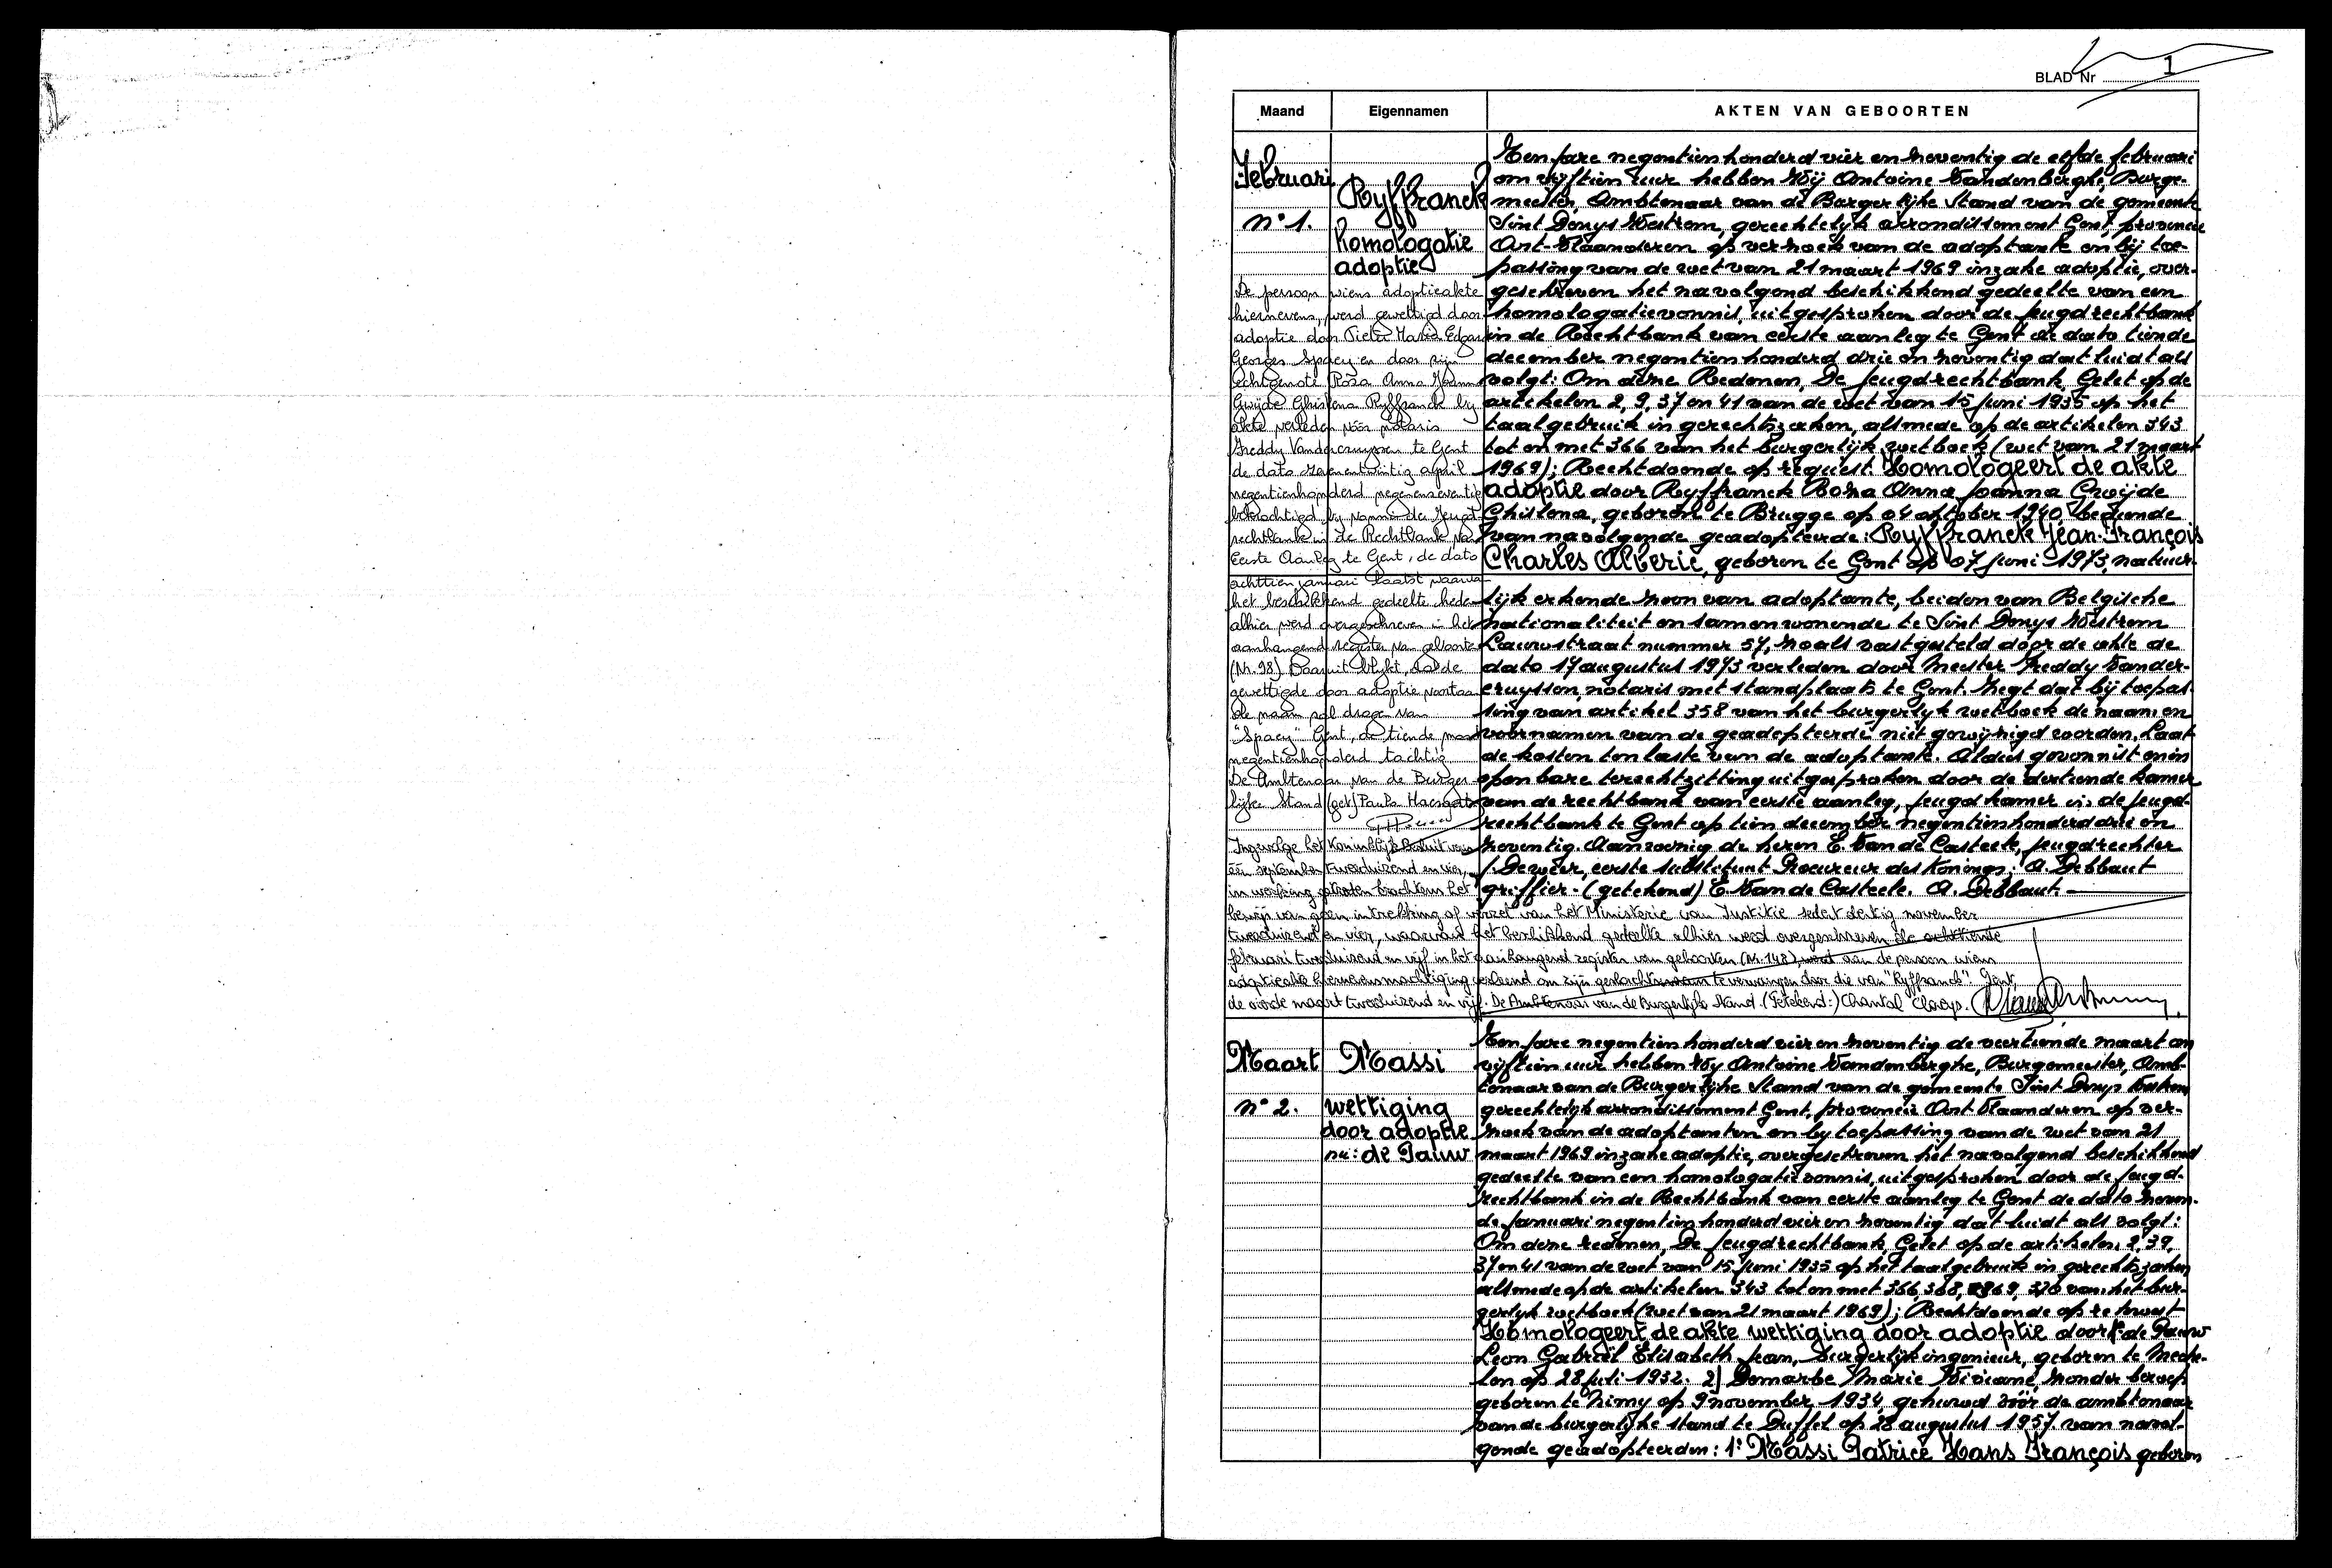 BLAD Nr 1
Maand Eigennamen AKTEN VAN GEBOORTEN
Februari
n° 1.
Ryffranck
homologatie
adoptie
De persoon wiens adoptieakte
hiernevens, werd gewettigd door
adoptie door Pieter Maria Edgard
Georges Spaey en door zijn
echtgenote Rosa Anna Joanna
Gwijde Ghislena Ryffranck bij
akte verleden vóór notaris
Freddy Vandercruyssen te Gent
de dato zevenentwintig april
negentienhonderd negenenzeventig
bekrachtigd bij vonnis der Jeugd-
rechtbank in de Rechtbank van
Eerste Aanleg te Gent, de dato
achttien januari laatst waarvan
het beschikkend gedeelte heden
alhier werd overgeschreven in het
aanhangend register van geboorten
(Nr. 98) Daaruit blijkt, dat de
gewettigde door adoptie voortaan
de naam zal dragen van
"Spaey" Gent, de tiende maart
negentienhonderd tachtig
De Ambtenaar van de Burger-
lijke Stand (get) Paula
Ingevolge het Koninklijk Besluit van
één september tweeduizend en vier,
in werking getreden krachtens het
bewijs van geen intrekking of verzet van het Ministerie van Justitie sedert dertig november
tweeduizend en vier, waarvan het beschikkend gedeelte alhier werd overgeschreven de achttiende
februari tweeduizend en vijf in het aanhangend register van geboorten (Nr. 148), werd aan de persoon wiens
adoptieakte hiernevens machtiging verleend om zijn geslachtsnaam te vervangen door die van "Ryffranck". Gent,
de vierde maart tweeduizend en vijf. De Ambtenaar van de Burgerlijke Stand. (Getekend:) Chantal Claeys.
Ten jare negentienhonderd vier en noventig de elfde februari
om vijftien uur hebben Wij Antoine Vandenberghe, Burge-
meester, Ambtenaar van de Burgerlijke Stand van de gemeente
Sint Denys Westrem, gerechtelijk arrondissement Gent, provincie
Oost-Vlaanderen op verzoek van de adoptante en bij toe-
passing van de wet van 21 maart 1969 inzake adoptie, over-
geschreven het navolgend beschikkend gedeelte van een
homologatievonnis, uitgesproken door de Jeugdrechtbank
in de Rechtbank van eerste aanleg te Gent de dato tiende
december negentienhonderd drie en noventig dat luidt als
volgt: Om deze Redenen, De Jeugdrechtbank, Gelet op de
artikelen 2, 9, 37 en 41 van de wet van 15 juni 1935 op het
taalgebruik in gerechtszaken, alsmede op de artikelen 343
tot en met 366 van het burgerlijk wetboek (wet van 21 maart
1969); Rechtdoende op request. Homologeert de akte
adoptie door Ryffranck Rosa Anna Joanna Gwijde
Ghislena, geboren te Brugge op 04 oktober 1940, bediende
van navolgende geadopteerde: Ryffranck Jean-François
Charles Alberic, geboren te Gent op 07 juni 1973, natuur-
lijk erkende zoon van adoptante, beiden van Belgische
nationaliteit en samenwonende te Sint Denys Westrem
Lauwstraat nummer 57, zoals vastgesteld door de akte de
dato 17 augustus 1973 verleden door Meester Freddy Vander-
cruyssen, notaris met standplaats te Gent. Zegt dat bij toepas-
sing van artikel 358 van het burgerlyk wetboek de naam en
voornamen van de geadopteerde niet gewijzigd worden. Laat
de kosten ten laste van de adoptante. Aldus gevonnist en in
openbare terechtzitting uitgesproken door de dertiende kamer
van de rechtbank van eerste aanleg, jeugdkamer in de jeugd-
rechtbank te Gent op tien december negentienhonderd drie en
noventig. Aanwezig de heren E. Van de Casteele, jeugdrechter
J. Dewever, eerste substituut Procureur des Konings; A. Debbaut
griffier - (getekend) E. Van de Casteele. A. Debbaut. -
Maart
n° 2.
Massi
wettiging
door adoptie
nu: de Pauw
Ten jare negentienhonderd vier en noventig de veertiende maart om
vijftien uur hebben Wij Antoine Vandenberghe, Burgemeester, Amb-
tenaar van de Burgerlijke Stand van de gemeente Sint Denys Westrem
gerechtelijk arrondissement Gent, provincie Oost Vlaanderen op ver-
zoek van de adoptanten en bij toepassing van de wet van 21
maart 1969 inzake adoptie, overgeschreven het navolgend beschikkend
gedeelte van een homologatievonnis, uitgesproken door de Jeugd-
rechtbank in de Rechtbank van eerste aanleg te Gent de dato
de Januari negentienhonderd vier en noventig dat luidt als volgt:
Om deze redenen, De Jeugdrechtbank, Gelet op de artikelen 2, 39,
37 en 41 van de wet van 15 Juni 1935 op het taalgebruik in gerechtszaken
alsmede op de artikelen 343 tot en met 366, 368, 369, 370 van het bur-
gerlyk wetboek (wet van 21 maart 1969); Rechtdoende op rekwest
Homologeert de akte wettiging door adoptie door 1° de Pauw
Leon Gabriël Elisabeth Jean, burgerlijk ingenieur, geboren te Meche-
len op 28 juli 1932. 2] Demarbe Marie Viviane, zonder beroep
geboren te Nimy op 9 november 1934, gehuwd vóór de ambtenaar
van de burgerlijke stand te Duffel op 28 augustus 1957 van navol-
gende geadopteerden: 1° Massi Patrice Hans François geboren